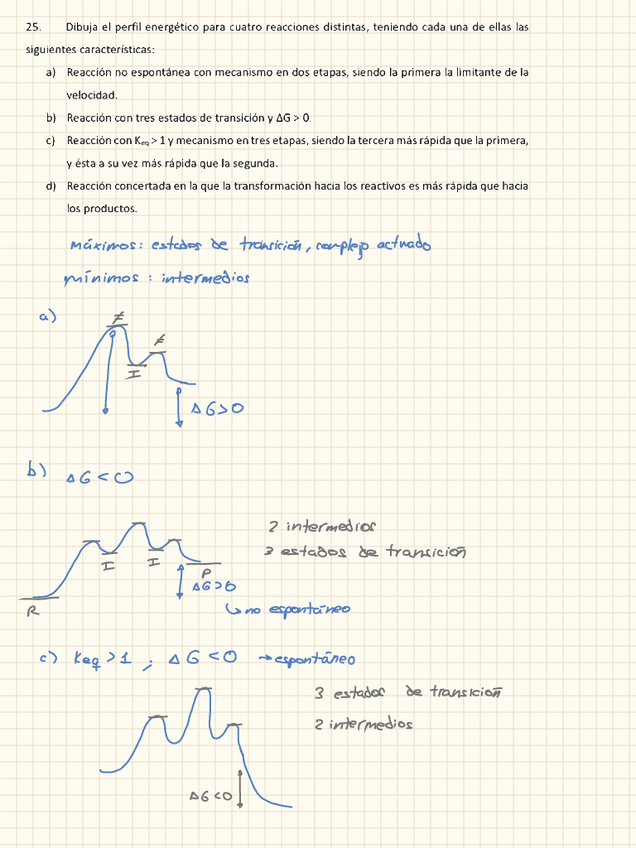 25. Dibuja el perfil energético para cuatro reacciones distintas, teniendo cada una de ellas las
siguientes características:
a) Reacción no espontánea con mecanismo en dos etapas, siendo la primera la limitante de la
velocidad.
b) Reacción con tres estados de transición y ΔG > 0
c) Reacción con Keq > 1 y mecanismo en tres etapas, siendo la tercera más rápida que la primera,
y ésta a su vez más rápida que la segunda.
d) Reacción concertada en la que la transformación hacia los reactivos es más rápida que hacia
los productos.
máximos: estados de transición, complejo activado
mínimos : intermedios
a)
≠
≠
I
ΔG>0
b) ΔG < 0
2 intermedios
3 estados de transición
I
I
P
ΔG>0
R
↳ no espontáneo
c) Keq > 1 ; ΔG < 0 → espontáneo
3 estados de transición
2 intermedios
ΔG<0